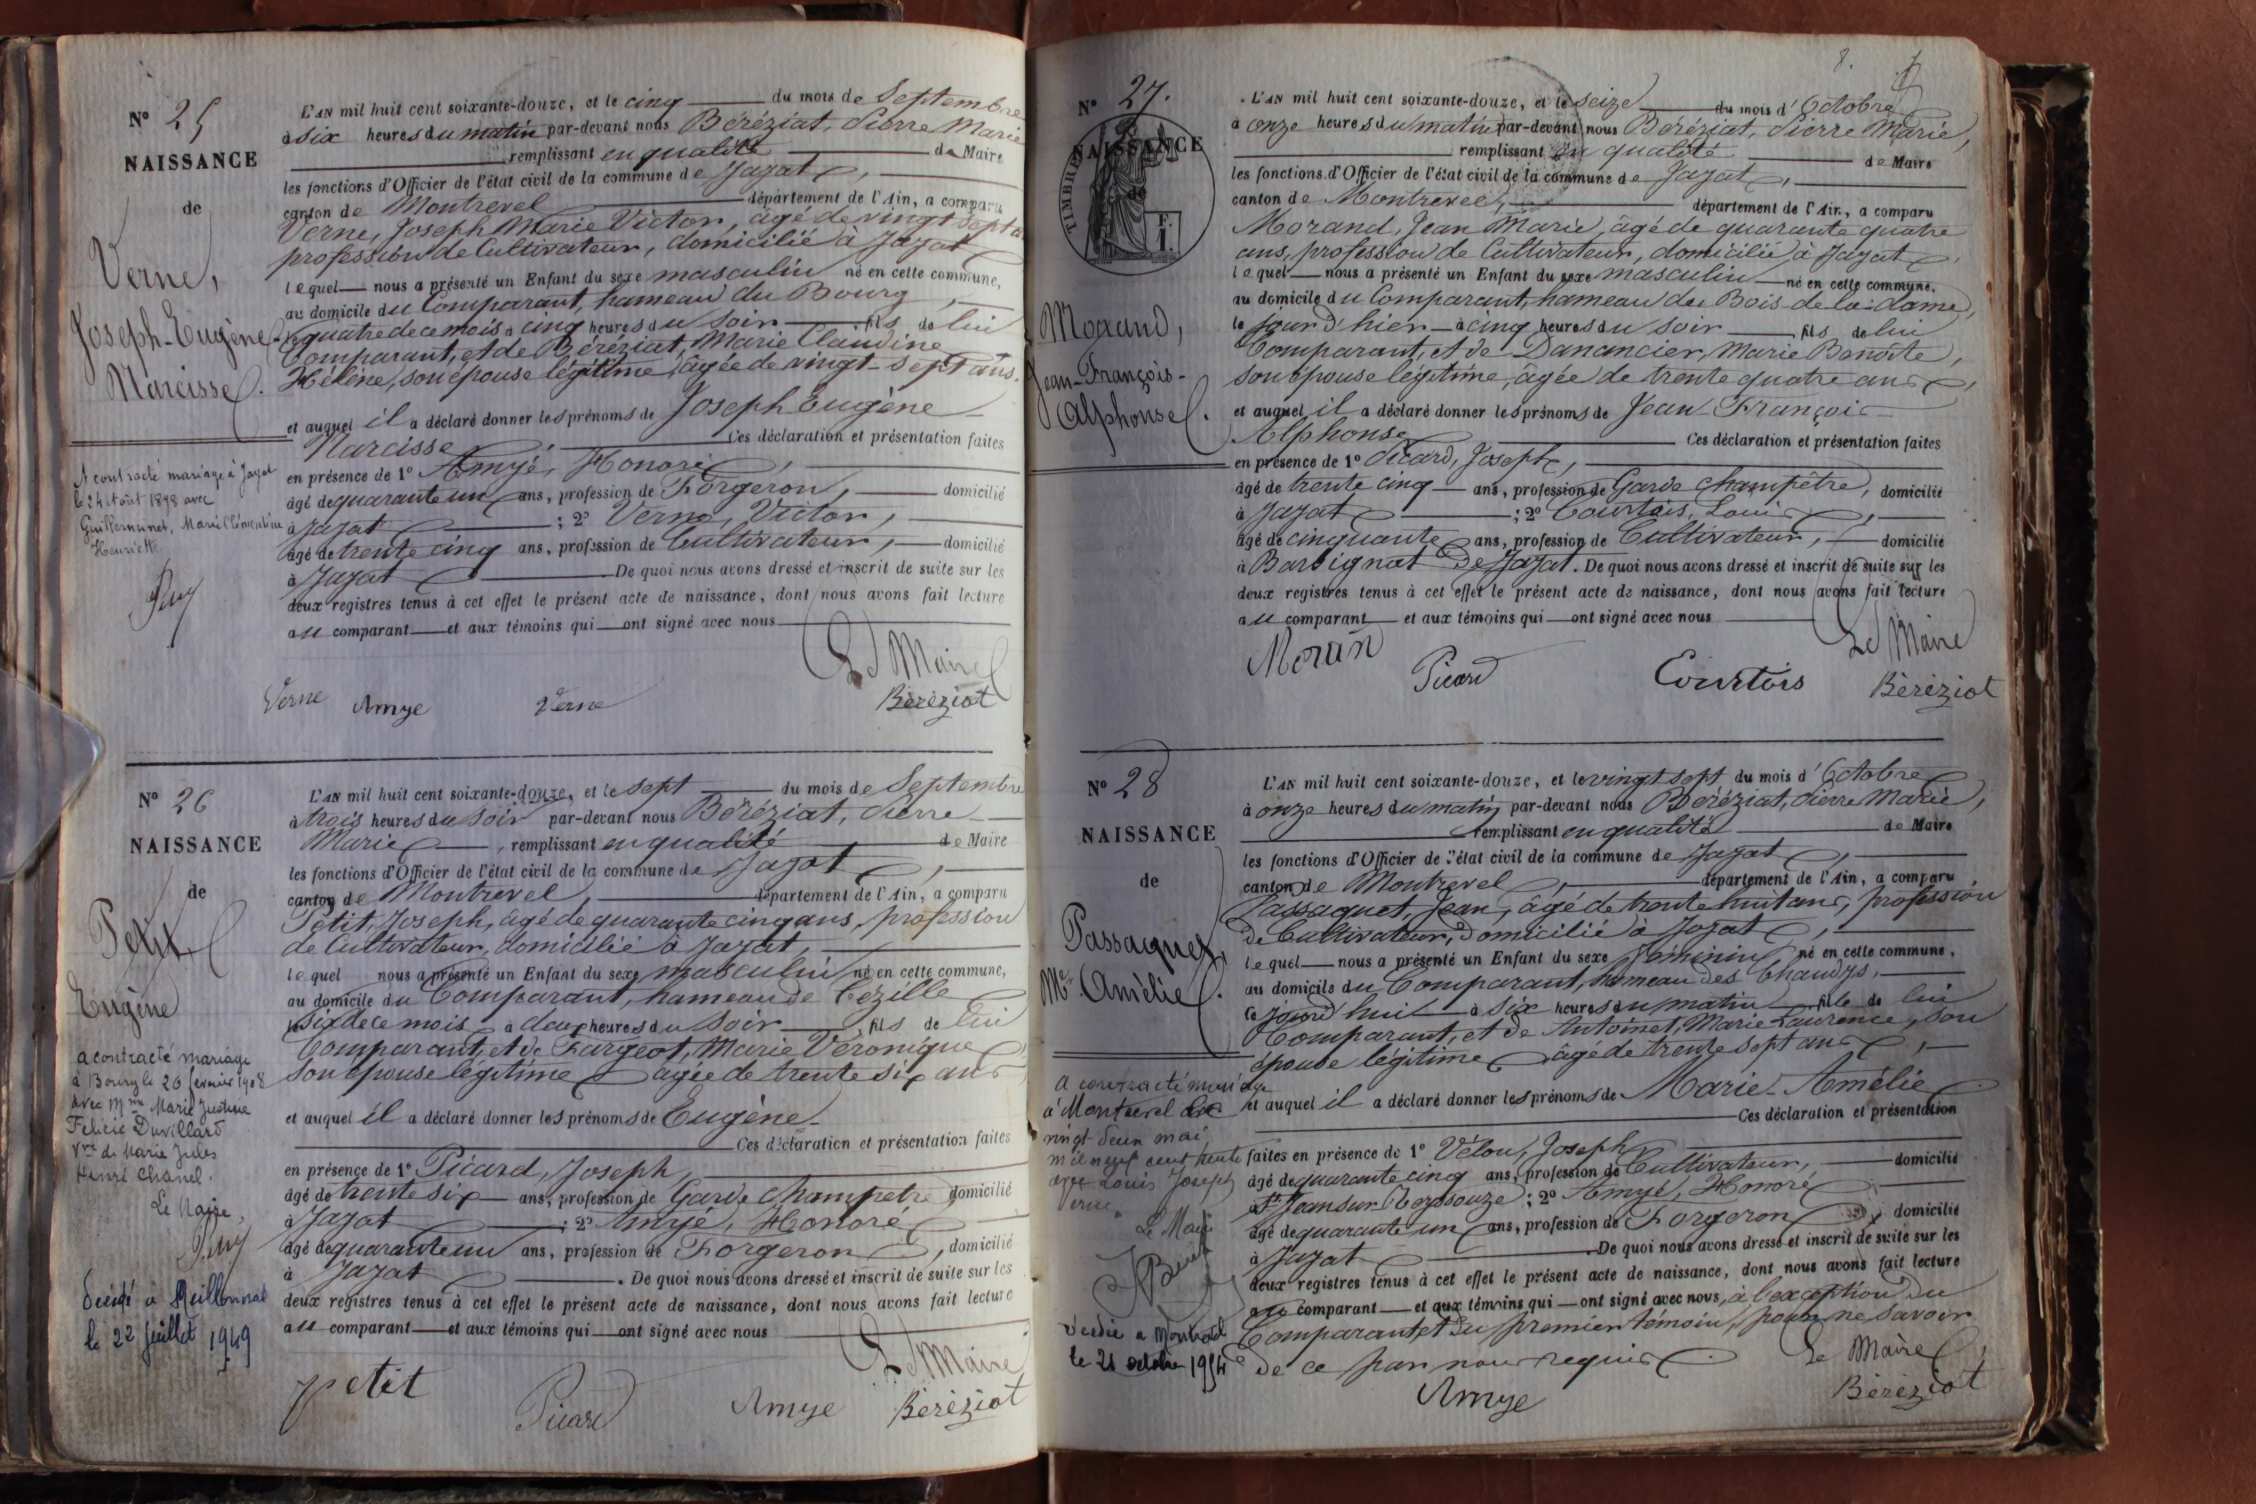 N° 25
NAISSANCE
de
Verne,
Joseph-Eugène-
Narcisse.
A contracté mariage à Jayat
le 24 Août 1898 avec
Guillerminet, Marie Clémentine
Henriette
L'AN mil huit cent soixante-douze, et le cinq du mois de Septembre
à six heures du matin par-devant nous Béréziat, Pierre Marie
remplissant en qualité de Maire
les fonctions d'Officier de l'état civil de la commune de Jayat,
canton de Montrevel département de l'Ain, a comparu
Verne, Joseph Marie Victor, âgé de vingt sept
profession de Cultivateur, domicilié à Jayat
lequel nous a présenté un Enfant du sexe masculin né en cette commune,
au domicile du Comparant, hameau du Bourg,
le quatre de ce mois à cinq heures du soir fils de lui
Comparant, et de Béréziat, Marie Claudine
Hélène, son épouse légitime, âgée de vingt-sept ans.
et auquel il a déclaré donner les prénoms de Joseph Eugène
Narcisse Ces déclaration et présentation faites
en présence de 1° Amyé, Honoré,
âgé de quarante un ans, profession de Forgeron, domicilié
à Jayat ; 2° Verne, Victor,
âgé de trente cinq ans, profession de Cultivateur, domicilié
à Jayat De quoi nous avons dressé et inscrit de suite sur les
deux registres tenus à cet effet le présent acte de naissance, dont nous avons fait lecture
au comparant et aux témoins qui ont signé avec nous
Le Maire
Verne Amye Verne Béréziat
N° 26
NAISSANCE
de
Petit
Eugène
a contracté mariage
à Bourg le 26 février 1908
avec Mme Marie Justine
Félicie Duvillard
Vve de Marie Jules
Henri Chanel.
Le Maire,
Décédé à Meillonnas
le 22 juillet 1949
L'AN mil huit cent soixante-douze, et le sept du mois de Septembre
à trois heures du soir par-devant nous Béréziat, Pierre
Marie, remplissant en qualité de Maire
les fonctions d'Officier de l'état civil de la commune de Jayat,
canton de Montrevel département de l'Ain, a comparu
Petit, Joseph, âgé de quarante cinq ans, profession
de Cultivateur, domicilié à Jayat,
lequel nous a présenté un Enfant du sexe masculin né en cette commune,
au domicile du Comparant, hameau de Cézille
le six de ce mois à deux heures du soir fils de lui
Comparant, et de Fargeot, Marie Véronique
son épouse légitime âgée de trente six ans
et auquel il a déclaré donner les prénoms de Eugène
Ces déclaration et présentation faites
en présence de 1° Picard, Joseph,
âgé de trente six ans, profession de Garde Champetre domicilié
à Jayat ; 2° Amyé, Honoré
âgé de quarante un ans, profession de Forgeron, domicilié
à Jayat. De quoi nous avons dressé et inscrit de suite sur les
deux registres tenus à cet effet le présent acte de naissance, dont nous avons fait lecture
au comparant et aux témoins qui ont signé avec nous
Le Maire
petit Picard Amye Béréziat
8.
N° 27.
NAISSANCE
de
TIMBRE
F.
1.
Morand,
Jean-François-
Alphonse.
L'AN mil huit cent soixante-douze, et le seize du mois d'Octobre
à onze heures du matin par-devant nous Béréziat, Pierre Marie,
remplissant en qualité de Maire
les fonctions d'Officier de l'état civil de la commune de Jayat,
canton de Montrevel, département de l'Ain, a comparu
Morand, Jean Marie, âgé de quarante quatre
ans, profession de Cultivateur, domicilié à Jayat,
lequel nous a présenté un Enfant du sexe masculin né en cette commune,
au domicile du Comparant, hameau du Bois-de-la-dame,
le jour d'hier à cinq heures du soir fils de lui
Comparant, et de Danancier, Marie Benoîte,
son épouse légitime, âgée de trente quatre ans,
et auquel il a déclaré donner les prénoms de Jean-François-
Alphonse Ces déclaration et présentation faites
en présence de 1° Picard, Joseph,
âgé de trente cinq ans, profession de Garde champêtre, domicilié
à Jayat ; 2° Courtois, Louis,
âgé de cinquante ans, profession de Cultivateur, domicilié
à Barbignat de Jayat. De quoi nous avons dressé et inscrit de suite sur les
deux registres tenus à cet effet le présent acte de naissance, dont nous avons fait lecture
au comparant et aux témoins qui ont signé avec nous
Le Maire
Moran Picard Courtois Béréziat
N° 28
NAISSANCE
de
Passaquet,
Mie Amélie.
a contracté mariage
à Montrevel le
vingt deux mai
mil neuf cent trente
avec Louis Joseph
Verne.
Le Maire
Décédée à Montrevel
le 21 octobre 1954
L'AN mil huit cent soixante-douze, et le vingt sept du mois d'Octobre
à onze heures du matin par-devant nous Béréziat, Pierre Marie,
remplissant en qualité de Maire
les fonctions d'Officier de l'état civil de la commune de Jayat,
canton de Montrevel, département de l'Ain, a comparu
Passaquet, Jean, âgé de trente huit ans, profession
de Cultivateur, domicilié à Jayat,
lequel nous a présenté un Enfant du sexe féminin né en cette commune,
au domicile du Comparant, hameau des Chaudys,
ce jourd'hui à six heures du matin fille de lui
Comparant, et de Antoinet, Marie Laurence, son
épouse légitime âgé de trente sept ans,
et auquel il a déclaré donner les prénoms de Marie-Amélie
Ces déclaration et présentation
faites en présence de 1° Vélon, Joseph
âgé de quarante cinq ans, profession de Cultivateur, domicilié
à St Jean sur Reyssouze ; 2° Amyé, Honoré
âgé de quarante un ans, profession de Forgeron, domicilié
à Jayat De quoi nous avons dressé et inscrit de suite sur les
deux registres tenus à cet effet le présent acte de naissance, dont nous avons fait lecture
au comparant et aux témoins qui ont signé avec nous, à l'exception du
Comparant et du premier témoin, pour ne savoir
de ce par nous requis. Le Maire
Amye Béréziat